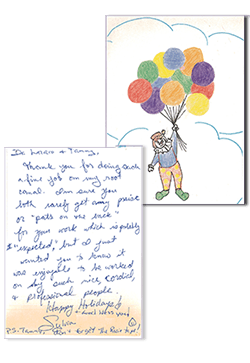 Thank you for doing such
a fine job on my root
canal. I'm sure you
both rarely get any praise
or "pats on the back"
for your work which is
"expected", but I just
wanted you to know it
was enjoyable to be worked
on by such nice, cordial,
& professional people.
Happy Holidays
P.S.